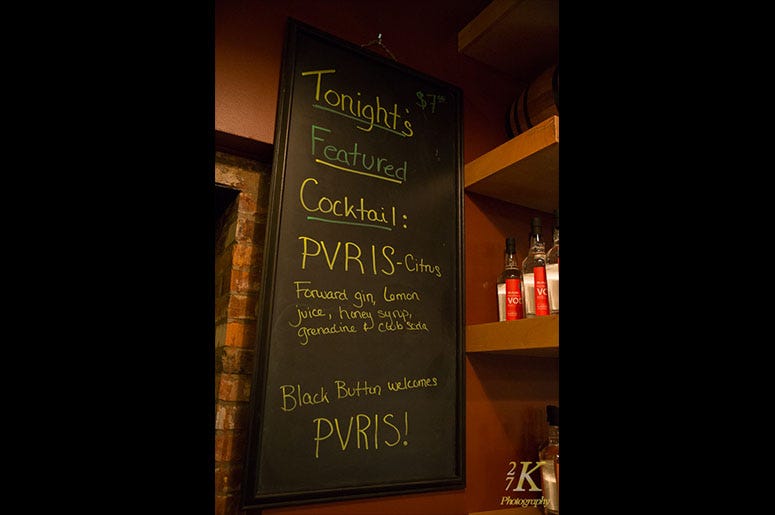 Tonight's
$7.00
Featured
Cocktail:
PVRIS-Citrus
Forward gin, lemon
juice, honey syrup,
grenadine & club soda
Black Button welcomes
PVRIS!
27K
Photography